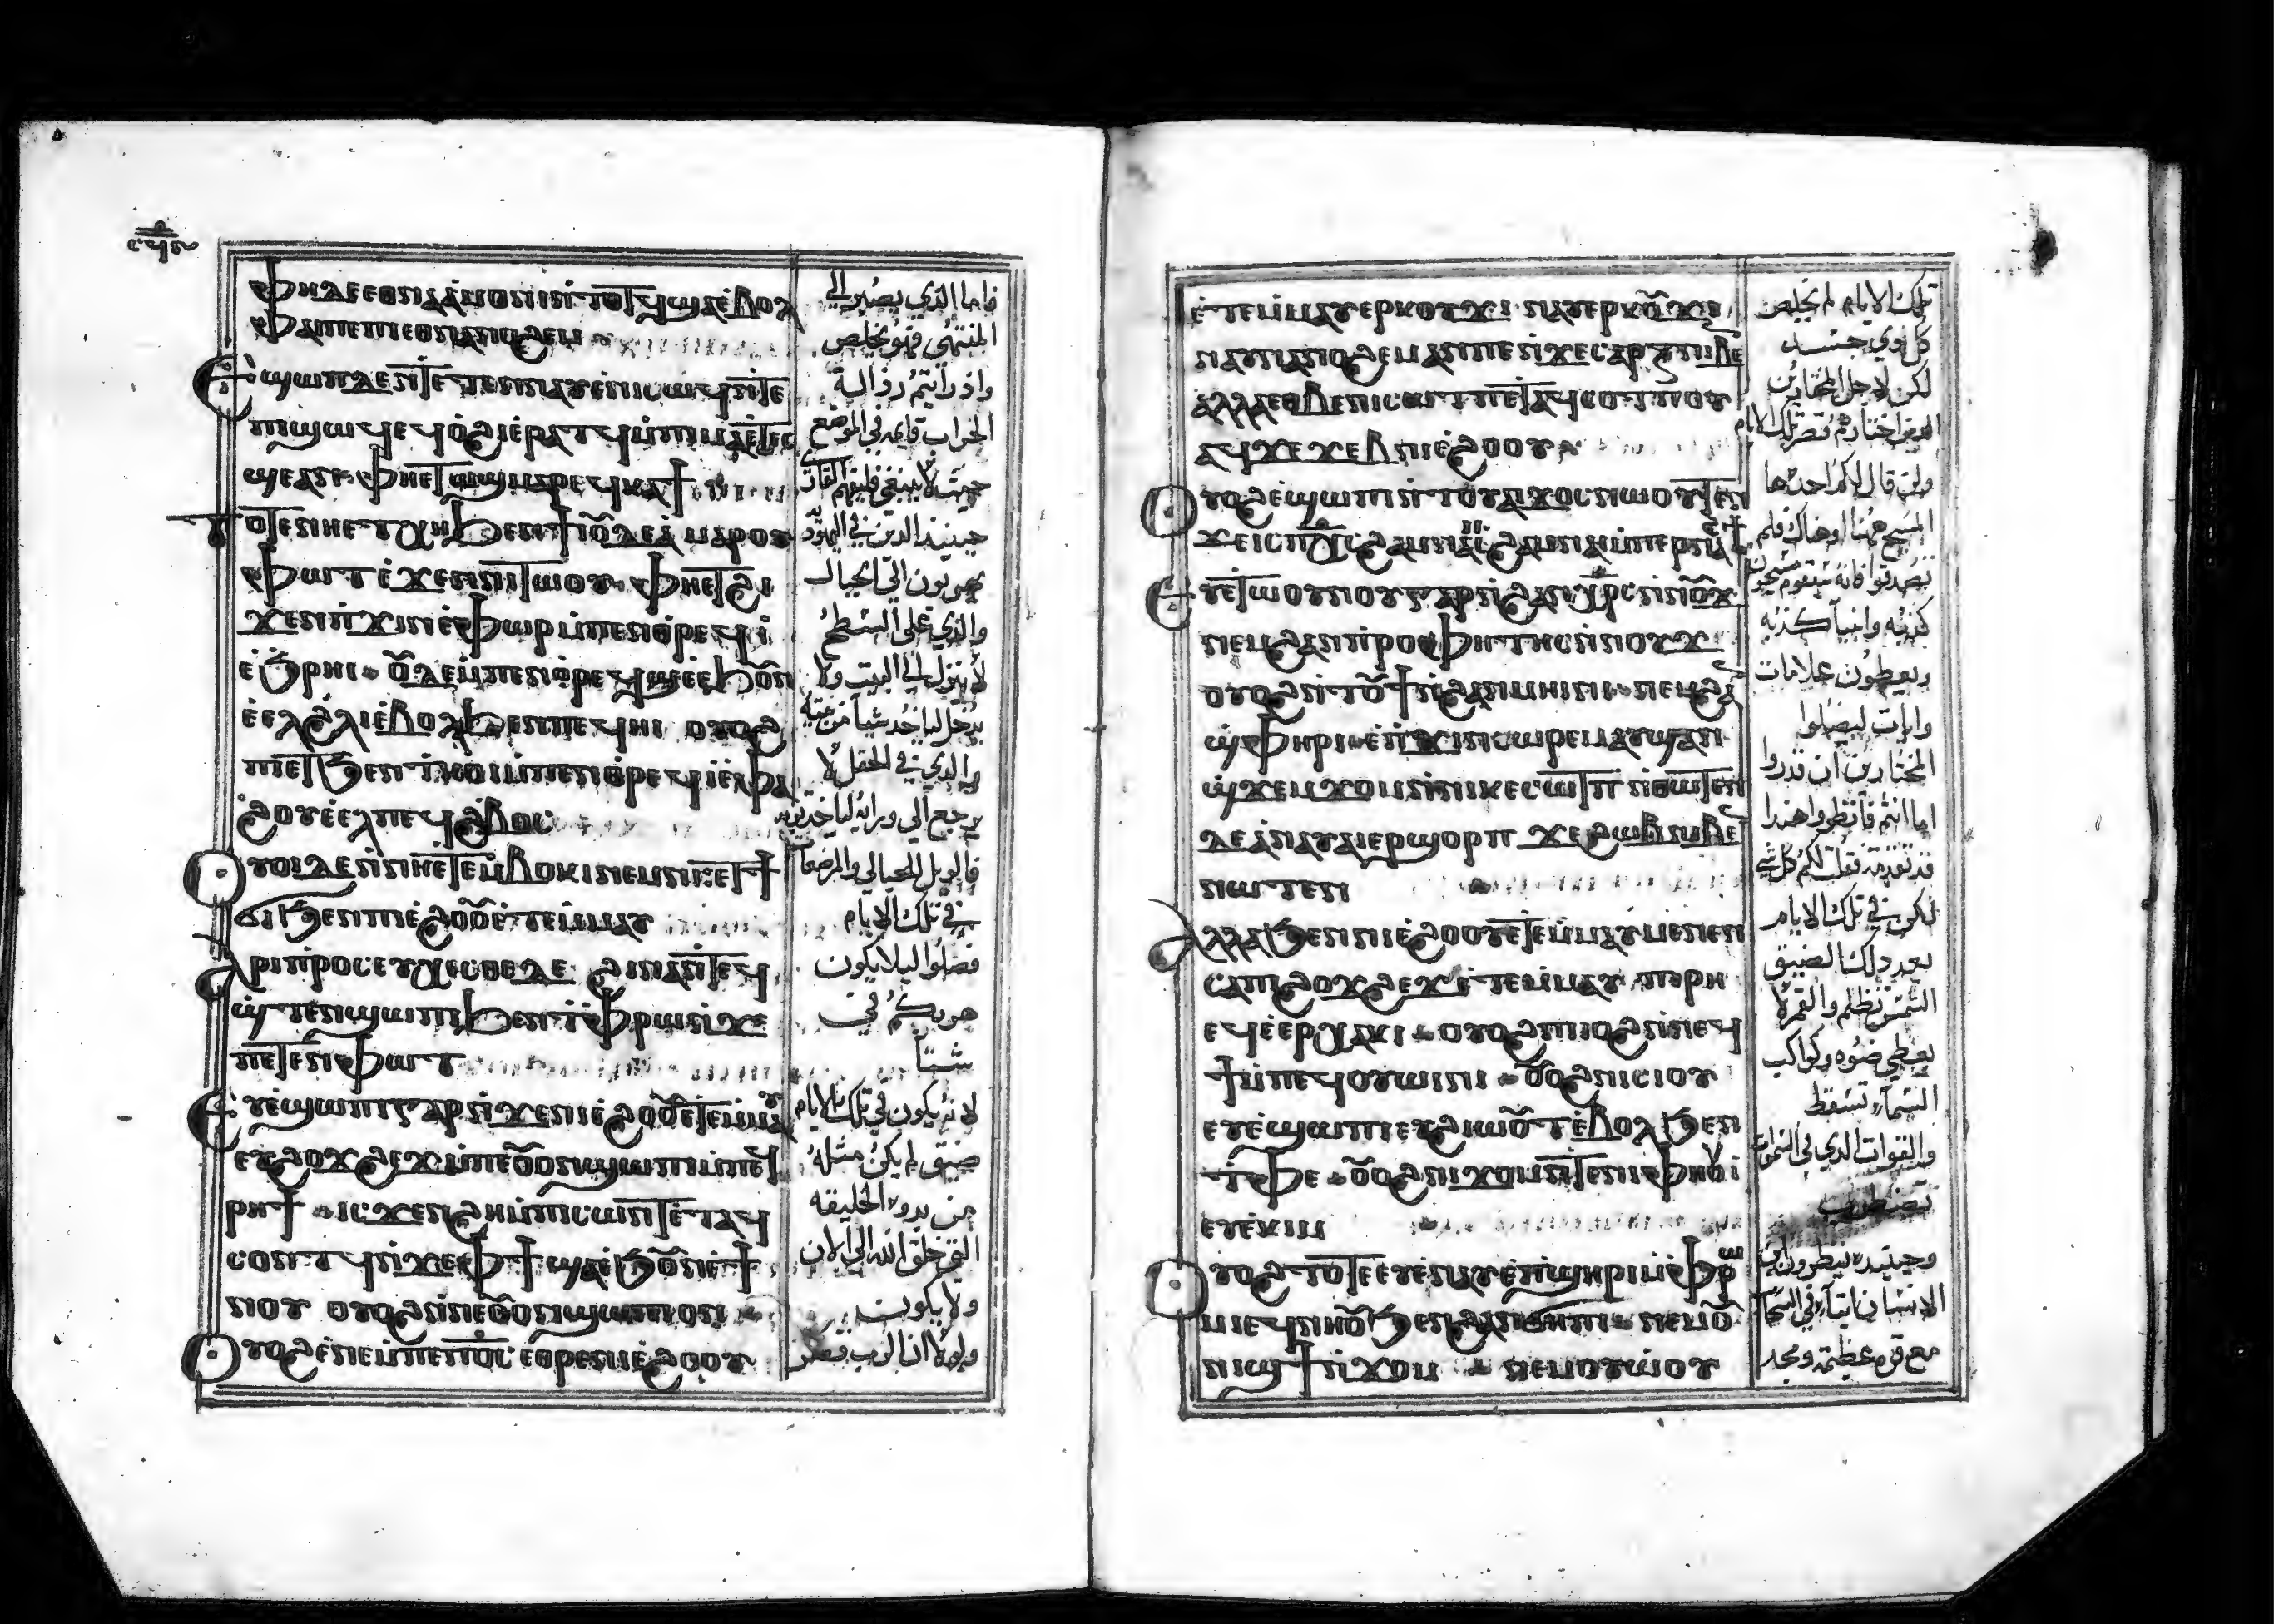 ⲫⲏⲇⲉⲉⲑⲛⲁⲁⲙⲟⲛⲓⲛⲧⲟⲧϥϣⲁⲉⲃⲟⲗ
ⲫⲁⲓⲡⲉⲧⲉⲑⲛⲁⲛⲟϩⲉⲙ
ⲉϣⲱⲡⲇⲉⲛⲧⲉ ⲧⲉⲛⲛⲁⲩⲉⲡⲓⲥⲱϥⲛⲧⲉ
ⲡⲓϣⲱϥⲉϥⲟϩⲓⲉⲣⲁⲧϥⲙⲡⲓⲙⲁⲉⲧⲉⲥ
ϣⲉⲁⲛ ⲫⲏⲉⲧⲱϣⲙⲁⲣⲉϥⲕⲁϯ
ⲧⲟⲧⲉⲛⲏⲉⲧⲭⲏϧⲉⲛϯⲓⲟⲩⲇⲉⲁ ⲙⲁⲣⲟⲩ
ⲫⲱⲧ ⲉϫⲉⲛⲛⲓⲧⲱⲟⲩ ⲫⲏⲉⲧϩⲓ
ϫⲉⲛⲡϫⲓⲛⲉⲫⲱⲣ ⲙⲡⲉⲛⲑⲣⲉϥⲓ
ⲉϧⲣⲏⲓ ⲟⲩⲇⲉ ⲙⲡⲉⲛⲑⲣⲉϥϣⲉⲉϧⲟⲩⲛ
ⲉⲉⲗϩⲗⲓⲉⲃⲟⲗϧⲉⲛⲡⲉϥⲏⲓ ⲟⲩⲟϩ
ⲡⲉⲧϧⲉⲛ ⲧⲕⲟⲓⲙⲡⲉⲛⲑⲣⲉϥ
ϩⲟⲩⲉⲉⲗⲡⲉϥϩⲃⲟⲥ
ⲟⲩⲟⲓⲇⲉⲛⲛⲏⲉⲧⲉⲙⲃⲟⲕⲓⲛⲉⲙⲛⲏⲉⲧϯ
ϭⲓϧⲉⲛⲛⲓⲉϩⲟⲟⲩⲉⲧⲉⲙⲙⲁⲩ
ⲁⲣⲓⲡⲣⲟⲥⲉⲩⲭⲉⲥⲑⲉⲇⲉ ϩⲓⲛⲁⲛⲧⲉϥ
ϣⲧⲉⲙϣⲱⲡⲓϧⲉⲛⲧⲫⲣⲱⲛϫⲉ
ⲡⲉⲧⲉⲛⲫⲱⲧ
ⲉⲩⲉϣⲱⲡⲓⲅⲁⲣⲛϫⲉⲛⲓⲉϩⲟⲟⲩⲉⲧⲉⲙⲙⲁⲩ
ⲉⲩϩⲟϫϩⲉϫⲙⲡⲉⲟⲩⲟⲛϣⲱⲡⲓⲙⲡⲉϥ
ⲣⲏϯ ⲓⲥϫⲉⲛϩⲏⲙⲡⲓⲥⲱⲛⲧⲉⲧⲁϥ
ⲥⲟⲛⲧϥⲛϫⲉⲫϯ ϣⲁⲉϧⲟⲩⲛⲉϯ
ⲛⲟⲩ ⲟⲩⲟϩⲛⲛⲉⲟⲩⲟⲛϣⲱⲡⲓⲟⲛ
ⲟⲩⲟϩⲉⲛⲉⲙⲡⲉⲡⲟⲥ ⲉⲑⲣⲉⲛⲓⲉϩⲟⲟⲩ
فاما الذي يصبر الي
المنتهى فهو يخلص
واذ رايتم رذالة
الخراب قايمه في الموضع
حيث لا ينبغي فليفهم القارئ
حينئذ الذين في اليهودية
يهربون الي الجبال
والذي علي السطح
لا ينزل الي البيت ولا
يدخل لياخد شيا من بيته
والذي في الحقل لا
يرجع الي ورايه لياخد ثوبه
فالويل للحبالي والمرضعات
في تلك الايام
فصلوا ليلا يكون
هربكم في
شتا
لانه يكون في تلك الايام
ضيق لم يكن مثله
من بدوء الخليقه
التي خلق الله الي الان
ولا يكون
ولولا ان الرب قصر
ⲉⲧⲉⲙⲙⲁⲩⲉⲣⲕⲟⲩϫⲓ ⲛⲁⲩⲉⲣⲕⲟⲩϫⲓ
ⲛⲁⲩⲛⲁⲛⲟϩⲉⲙⲁⲛⲡⲉⲛϫⲉⲥⲁⲣⲝⲛⲓⲃⲉⲛ
ⲁⲗⲗⲁⲉⲑⲃⲉⲛⲓⲥⲱⲧⲡⲉⲧⲁϥⲥⲟⲧⲡⲟⲩ
ⲁϥϫⲉϫⲉⲃⲛⲓⲉϩⲟⲟⲩ
ⲟⲩⲟϩⲉϣⲱⲡⲛⲧⲟⲩⲁⲓϫⲟⲥⲛⲱⲟⲩⲧⲉⲛ
ϫⲉⲓⲥⲡⲭⲥϩⲁⲙⲛⲁⲓϩⲁⲙⲛⲁⲓⲙⲡⲉⲣⲛⲁϩϯ
ⲉⲩⲉⲧⲱⲟⲩⲛⲟⲩⲅⲁⲣⲛϩⲁⲛⲭⲣⲥⲛⲛⲟⲩϫ
ⲛⲉⲙϩⲁⲛⲡⲣⲟⲫⲏⲧⲏⲥⲛⲛⲟⲩϫ
ⲟⲩⲟϩⲛⲧⲟⲩϯⲛϩⲁⲛⲙⲏⲓⲛⲓ ⲛⲉⲙϩⲁⲛ
ϣⲫⲏⲣⲓ ⲉⲡϫⲓⲛⲥⲱⲣⲉⲙⲁⲩϣⲁⲛ
ϣϫⲉⲙϫⲟⲙⲛⲛⲓⲕⲉⲥⲱⲧⲡ ⲛⲑⲱⲧⲉⲛ
ⲇⲉⲁⲛⲁⲩⲁⲓⲉⲣϣⲟⲣⲡ ϫⲉϩⲱⲃⲛⲓⲃⲉⲛ
ⲛⲱⲧⲉⲛ
ⲁⲗⲗⲁϧⲉⲛⲛⲓⲉϩⲟⲟⲩⲉⲧⲉⲙⲙⲁⲩⲙⲉⲛⲉⲛ
ⲥⲁⲡⲓϩⲟϫϩⲉϫⲉⲧⲉⲙⲙⲁⲩ ⲡⲓⲣⲏ
ⲉϥⲉⲉⲣⲭⲁⲕⲓ ⲟⲩⲟϩⲡⲓⲓⲟϩⲛⲛⲉϥ
ϯⲙⲡⲉϥⲟⲩⲱⲓⲛⲓ ⲟⲩⲟϩⲛⲓⲥⲓⲟⲩ
ⲉⲩⲉϣⲱⲡⲓⲉⲩϩⲓⲱⲟⲩⲧⲉⲃⲟⲗϧⲉⲛ
ⲧⲫⲉ ⲟⲩⲟϩⲛⲓϫⲟⲙⲛⲧⲉⲛⲓⲫⲏⲟⲩⲓ
ⲉⲩⲉⲕⲓⲙ
ⲟⲩⲟϩⲧⲟⲧⲉⲉⲩⲉⲛⲁⲩⲉⲡϣⲏⲣⲓⲙⲫⲣⲱ
ⲙⲓⲉϥⲛⲏⲟⲩϧⲉⲛϩⲁⲛϭⲏⲡⲓ ⲛⲉⲙⲟⲩ
ⲛⲓϣϯⲛϫⲟⲙ ⲛⲉⲙⲟⲩⲱⲟⲩ
تلك الايام لم يخلص
كل ذي جسد
لكن لاجل المختارين
الذين اختارهم قصر تلك الايام
وان قال لكم احد ها
المسيح ههنا او هناك فلم
تصدقوا فانه سيقوم مسيحون
كذبه وانبيا كذبه
ويعطون علامات
وايات ليضلوا
المختارين ان قدروا
اما انتم فانظروا هذا
قد تقدمت فقلت لكم كل شي
لكن في تلك الايام
بعد ذلك الضيق
الشمس تظلم والقمر لا
يعطي ضوه وكواكب
السما تسقط
والقوات الذي في السموات
تضطرب
وحينيذ ينظرون ابن
الانسان اتيا في السحاب
مع قوه عظيمه ومجد